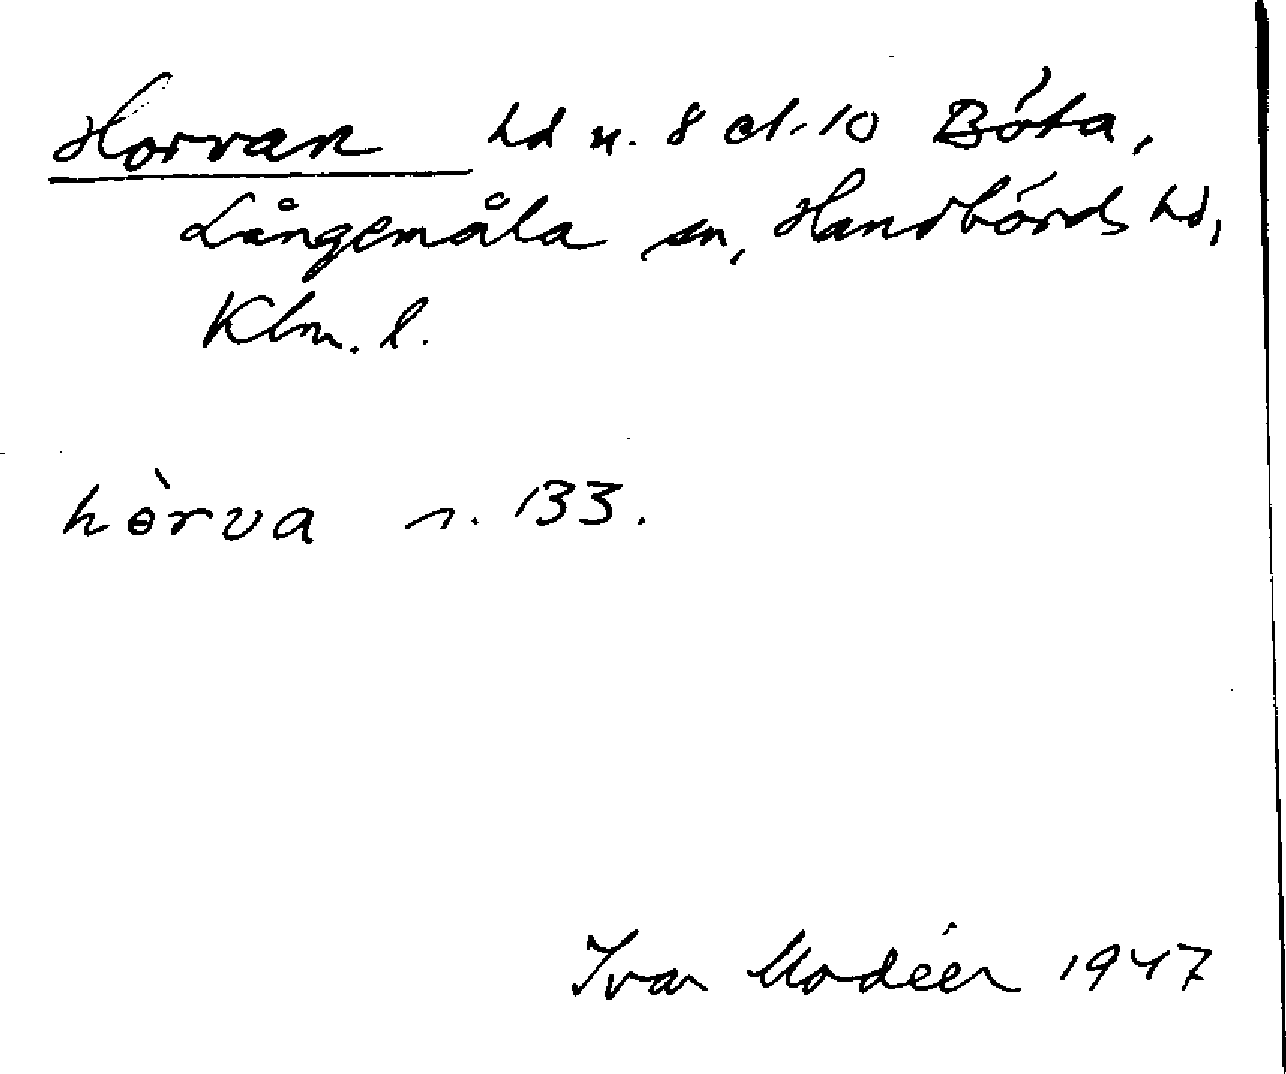 Horvan hd n. 8 el. 10 Böta,
Långemåla sn, Handbörds hd,
Klm. l.
hèrva s. 133.
Ivar Modéer 1947